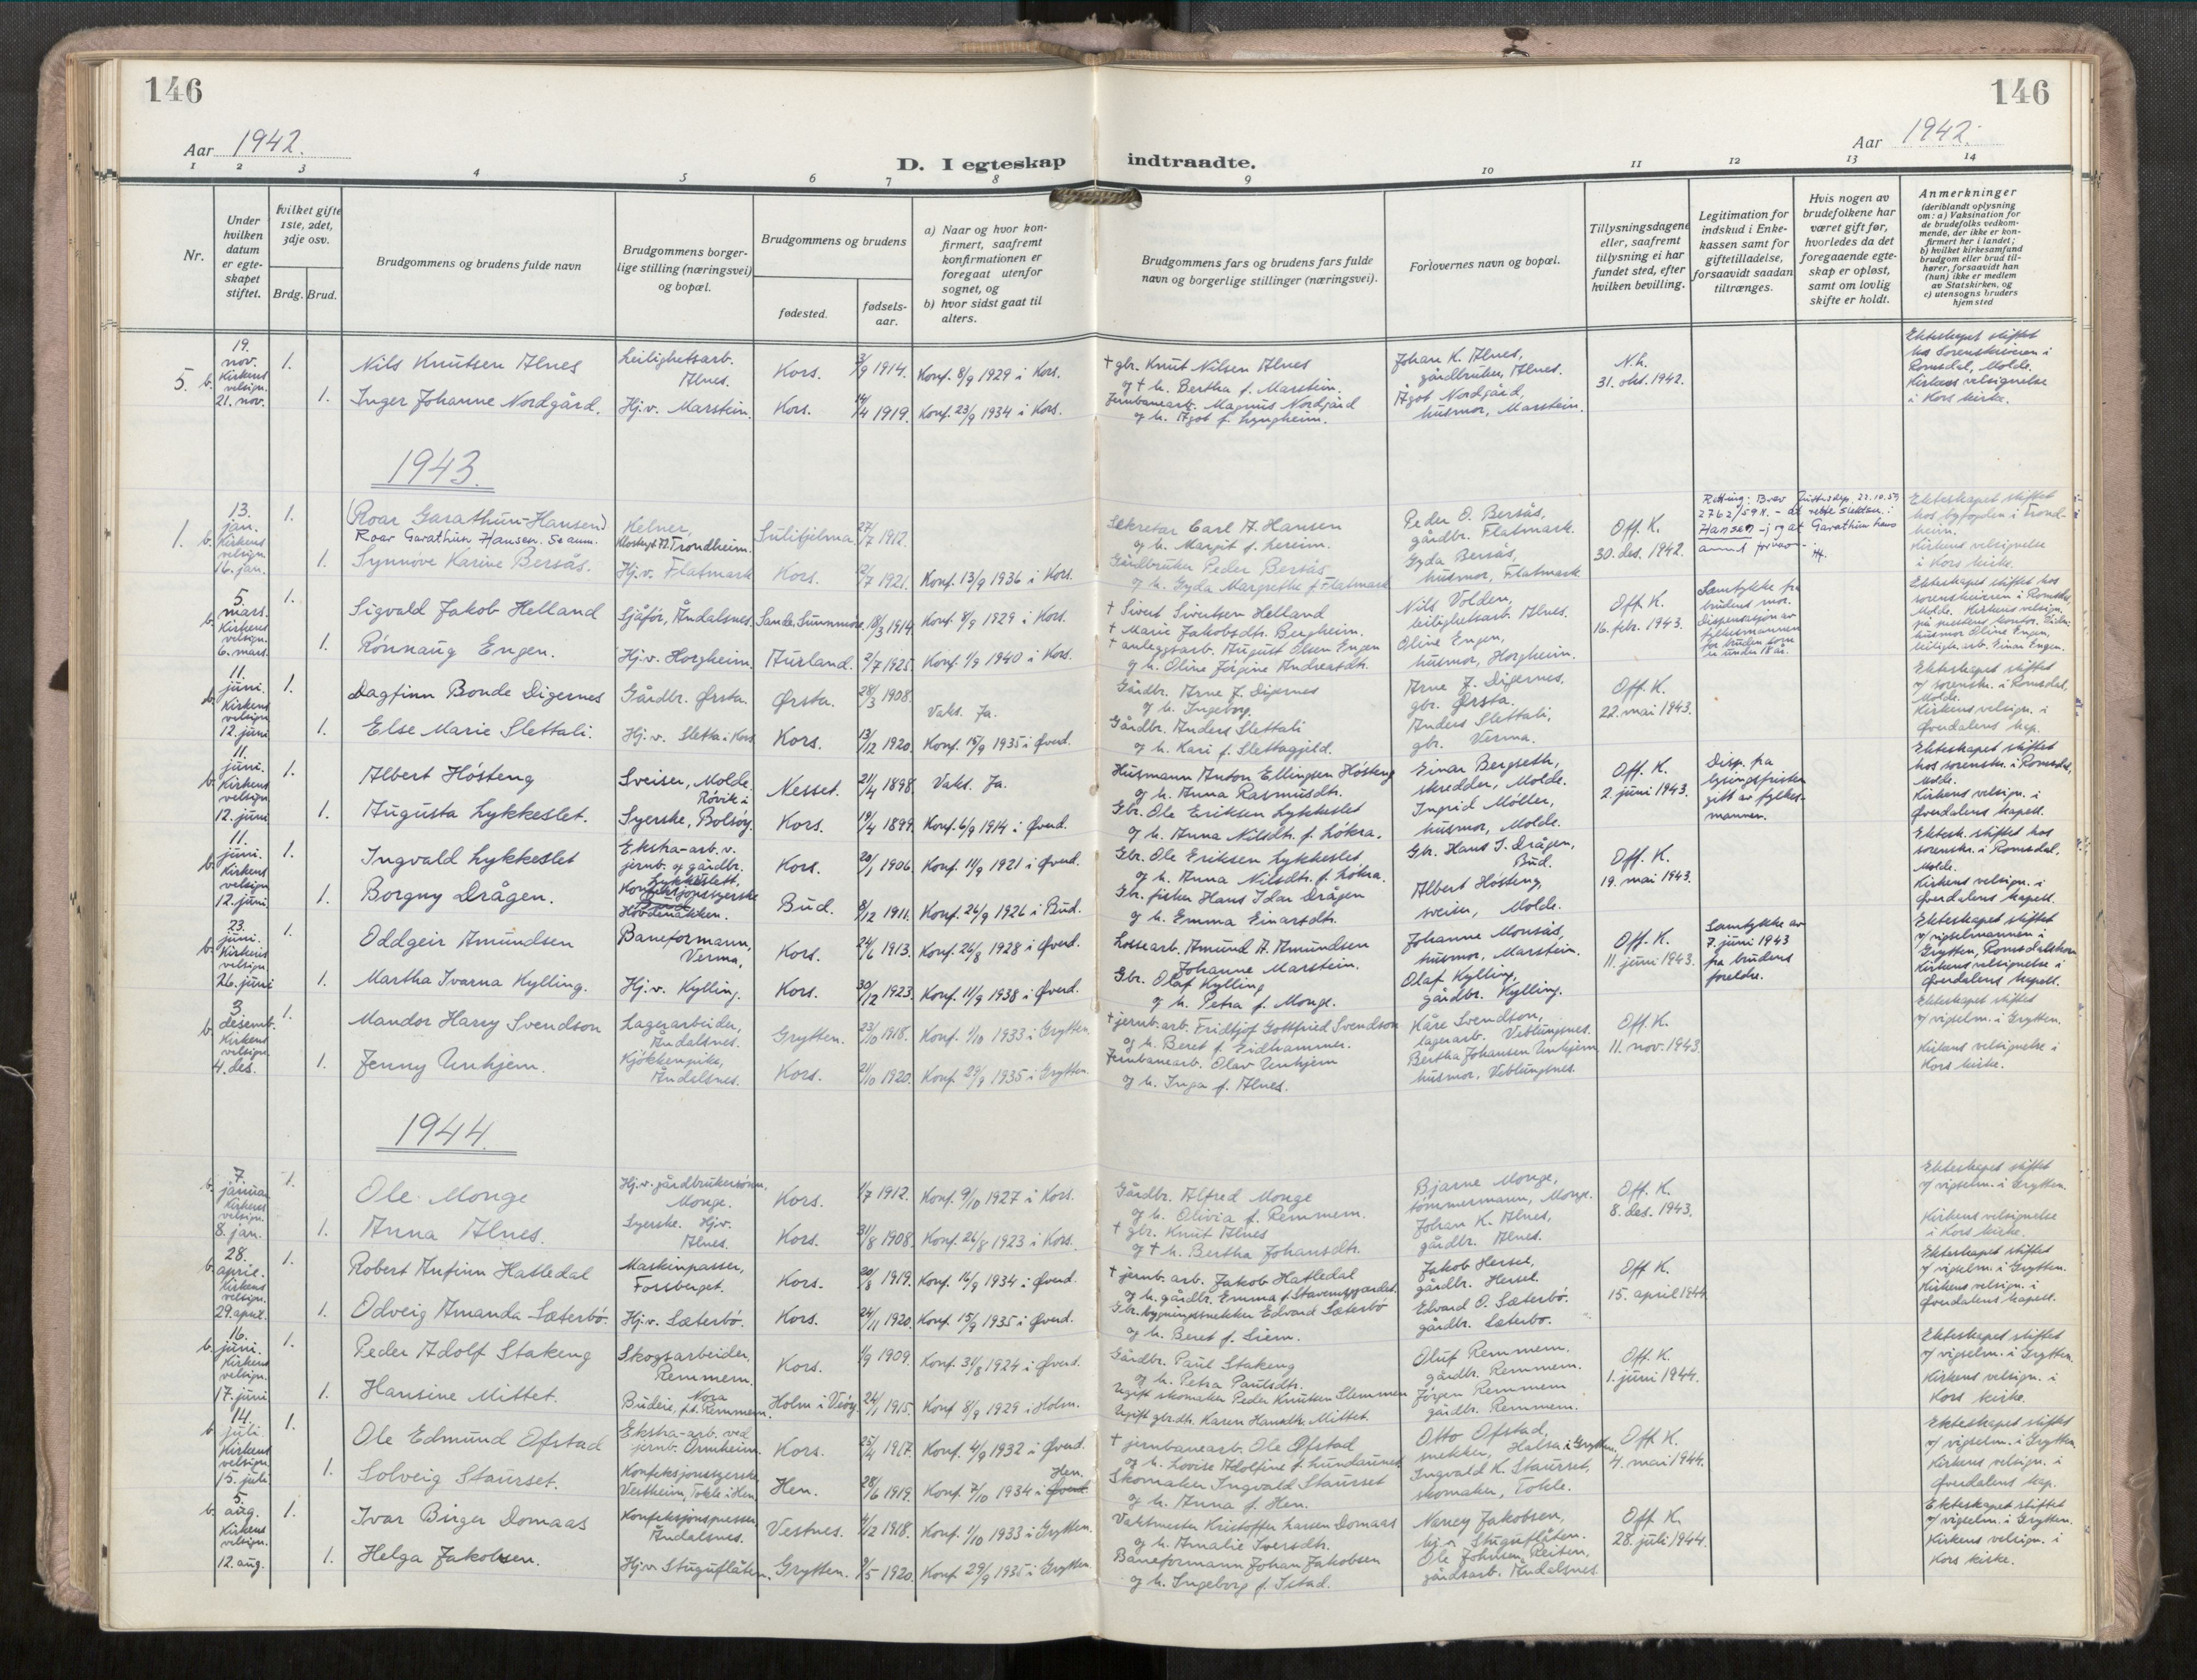 146
146
Aar 1942.
Aar 1942.
D. I egteskap indtraadte.
1 2 3 4 5 6 7 8 9 10 11 12 13 14
Nr.
Under hvilken datum er egteskapet stiftet.
hvilket gifte 1ste, 2det, 3dje osv.
Brdg. Brud.
Brudgommens og brudens fulde navn
Brudgommens borgerlige stilling (næringsvei) og bopæl.
Brudgommens og brudens
fødested.
fødselsaar.
a) Naar og hvor konfirmert, saafremt konfirmationen er foregaat utenfor sognet, og
b) hvor sidst gaat til alters.
Brudgommens fars og brudens fars fulde navn og borgerlige stillinger (næringsvei).
Forlovernes navn og bopæl.
Tillysningsdagene eller, saafremt tillysning ei har fundet sted, efter hvilken bevilling.
Legitimation for indskud i Enkekassen samt for giftetilladelse, forsaavidt saadan tiltrænges.
Hvis nogen av brudefolkene har været gift før, hvorledes da det foregaaende egteskap er opløst, samt om lovlig skifte er holdt.
Anmerkninger (deriblandt oplysning om: a) Vaksination for de brudefolks vedkommende, der ikke er konfirmert her i landet; b) hvilket kirkesamfund brudgom eller brud tilhører, forsaavidt han (hun) ikke er medlem av Statskirken, og c) utensogns bruders hjemsted
5. b. 19. nov. Kirkens velsign. 21. nov.
1. Nils Knutsen Alnes Leilighetsarb. Alnes. Kors. 3/9 1914. Konf. 8/9 1929 i Kors.
† gbr. Knut Nilsen Alnes og † h. Bertha f. Marstein. Johan K. Alnes, gårdbruker, Alnes. N.k. 31. okt. 1942.
Ekteskapet stiftet hos Sorenskriveren i Romsdal, Molde. Kirkens velsignelse i Kors kirke.
1. Inger Johanne Nordgård. Hj.v. Marstein. Kors. 14/4 1919. Konf. 23/9 1934 i Kors.
Jernbanearb. Magnus Nordgård og h. Ågot f. Lyngheim. Ågot Nordgård, husmor, Marstein.
1943.
1. b. 13. jan. Kirkens velsign. 16. jan.
1. (Roar Garathun-Hansen) Roar Garathun Hansen. Se anm. Kelner, Trondheim. Sulitjelma 27/7 1912.
Sekretær Carl A. Hansen og h. Margit f. Lereim. Peder O. Bersås, gårdbr. Flatmark. Off. K. 30. des. 1942.
Retting: Brev Justisdep. 22.10.59 2762/59 - at rette slektsn. i Hansen - og at Garathun hans annet fornavn.
Ekteskapet stiftet hos byfogden i Trondheim. Kirkens velsignelse i Kors kirke.
1. Synnöve Karine Bersås. Hj.v. Flatmark Kors. 2/7 1921. Konf. 13/9 1936 i Kors.
Gårdbruker Peder Bersås og h. Gyda Margrethe f. Flatmark Gyda Bersås, husmor, Flatmark
b. 5. mars. Kirkens velsign. 6. mars.
1. Sigvald Jakob Helland Sjåför, Åndalsnes. Sande, Sunnmöre. 18/3 1914 Konf. 8/9 1929 i Kors.
† Sivert Sivertsen Helland † Marie Jakobsdtr. Bergheim. Nils Volden, leilighetsarb. Alnes. Off. K. 16. febr. 1943.
Samtykke fra brudens mor. Dispensasjon av fylkesmannen for bruden som er under 18 år.
Ekteskapet stiftet hos sorenskriveren i Romsdal, Molde. Kirkens velsign. på prestens kontor. Vidn: husmor Oline Engen, leiligh.arb. Einar Engen.
1. Rönnaug Engen. Hj.v. Horgheim. Aurland. 2/7 1925. Konf. 1/9 1940 i Kors.
† anleggsarb. August Olsen Engen og h. Oline Jörgine Andreasdtr. Oline Engen, husmor, Horgheim.
b. 11. juni. Kirkens velsign. 12. juni
1. Dagfinn Bonde Digernes Gårdbr. Ørsta. Ørsta. 28/3 1908. Vaks. Ja.
Gårdbr. Arne J. Digernes og h. Ingeborg. Arne J. Digernes, gbr. Ørsta. Off. K. 22. mai 1943.
Ekteskapet stiftet v/ sorenskr. i Romsdal, Molde. Kirkens velsign. i Øverdalens kap.
1. Else Marie Slettali. Hj.v. Sletta i Kors Kors. 13/12 1920. Konf. 15/9 1935 i Øverd.
Gårdbr. Anders Slettali og h. Kari f. Slettagjeld. Anders Slettali, gbr. Verma.
b. 11. juni. Kirkens velsign. 12. juni
1. Albert Hösteng Sveiser, Molde. Nesset. 21/4 1898. Vaks. Ja.
Husmann Anton Ellingsen Hösteng og h. Anna Rasmusdtr. Einar Bergseth, skredder, Molde. Off. K. 2. juni 1943.
Disp. fra lysingsfristen gitt av fylkesmannen.
Ekteskapet stiftet hos sorenskr. i Romsdal, Molde. Kirkens velsign. i Øverdalens kapell.
1. Augusta Lykkeslet. Syerske, Rövik i Bolsöy. Kors. 19/4 1899. Konf. 6/9 1914 i Øverd.
Gbr. Ole Eriksen Lykkeslet og h. Anna Nilsdtr. f. Lökra. Ingrid Möller, husmor, Molde.
b. 11. juni. Kirkens velsign. 12. juni
1. Ingvald Lykkeslet Ekstra-arb. v. jernb. og gårdbr. Lykkeslett. Kors. 20/1 1906. Konf. 11/9 1921 i Øverd.
Gbr. Ole Eriksen Lykkeslet og h. Anna Nilsdtr. f. Lökra. Gbr. Hans I. Drågen, Bud. Off. K. 19. mai 1943.
Ektesk. stiftet hos sorenskr. i Romsdal. Molde. Kirkens velsign. i Øverdalens kapell.
1. Borgny Drågen. Konfeksjonssyerske Bud. 8/12 1911. Konf. 26/9 1926 i Bud.
Gbr. fisker Hans Idar Drågen og h. Emma Einarsdtr. Albert Hösteng, sveiser, Molde.
b. 23. juni. Kirkens velsign. 26. juni
1. Oddgeir Amundsen Baneformann, Verma, Kors. 24/6 1913. Konf. 26/8 1928 i Øverd.
Lossearb. Amund A. Amundsen Johanne Marstein. Johanne Monsås, husmor, Marstein. Off. K. 11. juni 1943.
Samtykke av 7. juni 1943 fra brudens foreldre.
Ekteskapet stiftet v/ vigselmannen i Grytten, Romsdalshorn Kirkens velsignelse i Øverdalens kapell.
1. Martha Ivarna Kylling. Hj.v. Kylling. Kors. 30/12 1923. Konf. 11/9 1938 i Øverd.
Gbr. Olaf Kylling og h. Petra f. Monge. Olaf Kylling, gårdbr. Kylling.
b. 3. desemb. Kirkens velsign. 4. des.
1. Mandor Harry Svendson Lagerarbeider, Åndalsnes. Grytten. 23/10 1918. Konf. 1/10 1933 i Grytten.
† jernb.arb. Fridtjof Gottfried Svendson og h. Beret f. Eidhammer. Kåre Svendson, lagerarb. Veblungsnes. Off. K. 11. nov. 1943.
Ekteskapet stiftet v/ vigselm. i Grytten. Kirkens velsignelse i Kors kirke.
1. Jenny Unhjem. Kjökkenpike, Åndalsnes. Kors. 21/10 1920. Konf. 29/9 1935 i Grytten.
Jernbanearb. Olav Unhjem og h. Inga f. Alnes. Bertha Johansen Unhjem husmor, Veblungsnes.
1944.
b. 7. januar Kirkens velsign. 8. jan.
1. Ole Monge Hj.v. gårdbrukersönn. Monge. Kors. 1/7 1912. Konf. 9/10 1927 i Kors.
Gårdbr. Alfred Monge og h. Olivia f. Remmem. Bjarne Monge, tömmermann, Monge. Off. K. 8. des. 1943.
Ekteskapet stiftet v/ vigselm. i Grytten. Kirkens velsignelse i Kors kirke.
1. Anna Alnes. Syerske. Hjv. Alnes. Kors. 31/8 1908. Konf. 26/8 1923 i Kors.
† gbr. Knut Alnes og † h. Bertha Johansdtr. Johan K. Alnes, gårdbr. Alnes.
b. 28. april. Kirkens velsign. 29. april.
1. Robert Anfinn Hatledal Maskinpasser, Fossberget. Kors. 20/8 1919. Konf. 16/9 1934 i Øverd.
† jernb.arb. Jakob Hatledal og h. gårdbr. Emma f. Stavemsgardet. Jakob Hersel, gårdbr. Hersel. Off. K. 15. april 1944
Ekteskapet stiftet v/ vigselm. i Grytten. Kirkens velsign. i Øverdalens kapell.
1. Odveig Amanda Sæterbö. Hj.v. Sæterbö. Kors. 24/11 1920. Konf. 15/9 1935 i Øverd.
Gbr. bygningssnekker Edvard Sæterbö og h. Beret f. Siem. Edvard O. Sæterbö. gårdbr. Sæterbö.
b. 16. juni. Kirkens velsign. 17. juni
1. Peder Adolf Stakeng Skogsarbeider, Remmem. Kors. 1/9 1909. Konf. 31/8 1924 i Øverd.
Gårdbr. Paul Stakeng og h. Petra Paulsdtr. Oluf Remmem. gårdbr. Remmem. Off. K. 1. juni 1944.
Ekteskapet stiftet v/ vigselm. i Grytten. Kirkens velsign. i Kors kirke.
1. Hansine Mittet. Budeie, p.t. Nora Remmem. Holm i Veöy. 24/1 1915. Konf. 8/9 1929 i Holm.
Ugift skomaker Peder Knutsen Slemmen Ugift gbrdtr. Karen Hansdtr. Mittet. Jörgen Remmem gårdbr. Remmem.
b. 14. juli. Kirkens velsign. 15. juli
1. Ole Edmund Øfstad Ekstra-arb. ved jernb. Ormheim. Kors. 25/4 1917. Konf. 4/9 1932 i Øverd.
† jernbanearb. Ole Øfstad og h. Lovise Adolfine f. Lundaunet. Otto Øfstad, snekker, Halsa i Grytten. Off. K. 4. mai 1944.
Ekteskapet stiftet v/ vigselm. i Grytten. Kirkens velsign. i Øverdalens kap.
1. Solveig Staurset. Konfeksjonssyerske Vestheim, Tokle i Hen. Hen. 28/6 1919. Konf. 7/10 1934 i Øverd. Hen.
Skomaker Ingvald Staurset og h. Anna f. Hen. Ingvald K. Staurset, skomaker, Tokle.
b. 5. aug. Kirkens velsign. 12. aug.
1. Ivar Birger Domaas Konfeksjonspresser Åndalsnes. Vestnes. 4/12 1918. Konf. 1/10 1933 i Grytten.
Vaktmester Kristoffer Larsen Domaas og h. Amalie Iversdtr. Nancy Jakobsen, hj.v. Stuguflåten. Off. K. 28. juli 1944.
Ekteskapet stiftet v/ vigselm. i Grytten. Kirkens velsign. i Kors kirke.
1. Helga Jakobsen. Hj.v. Stuguflåten. Grytten. 9/5 1920. Konf. 29/9 1935 i Grytten.
Baneformann Johan Jakobsen og h. Ingeborg f. Istad. Ole Johnsen Reiten, gårdsarb. Åndalsnes